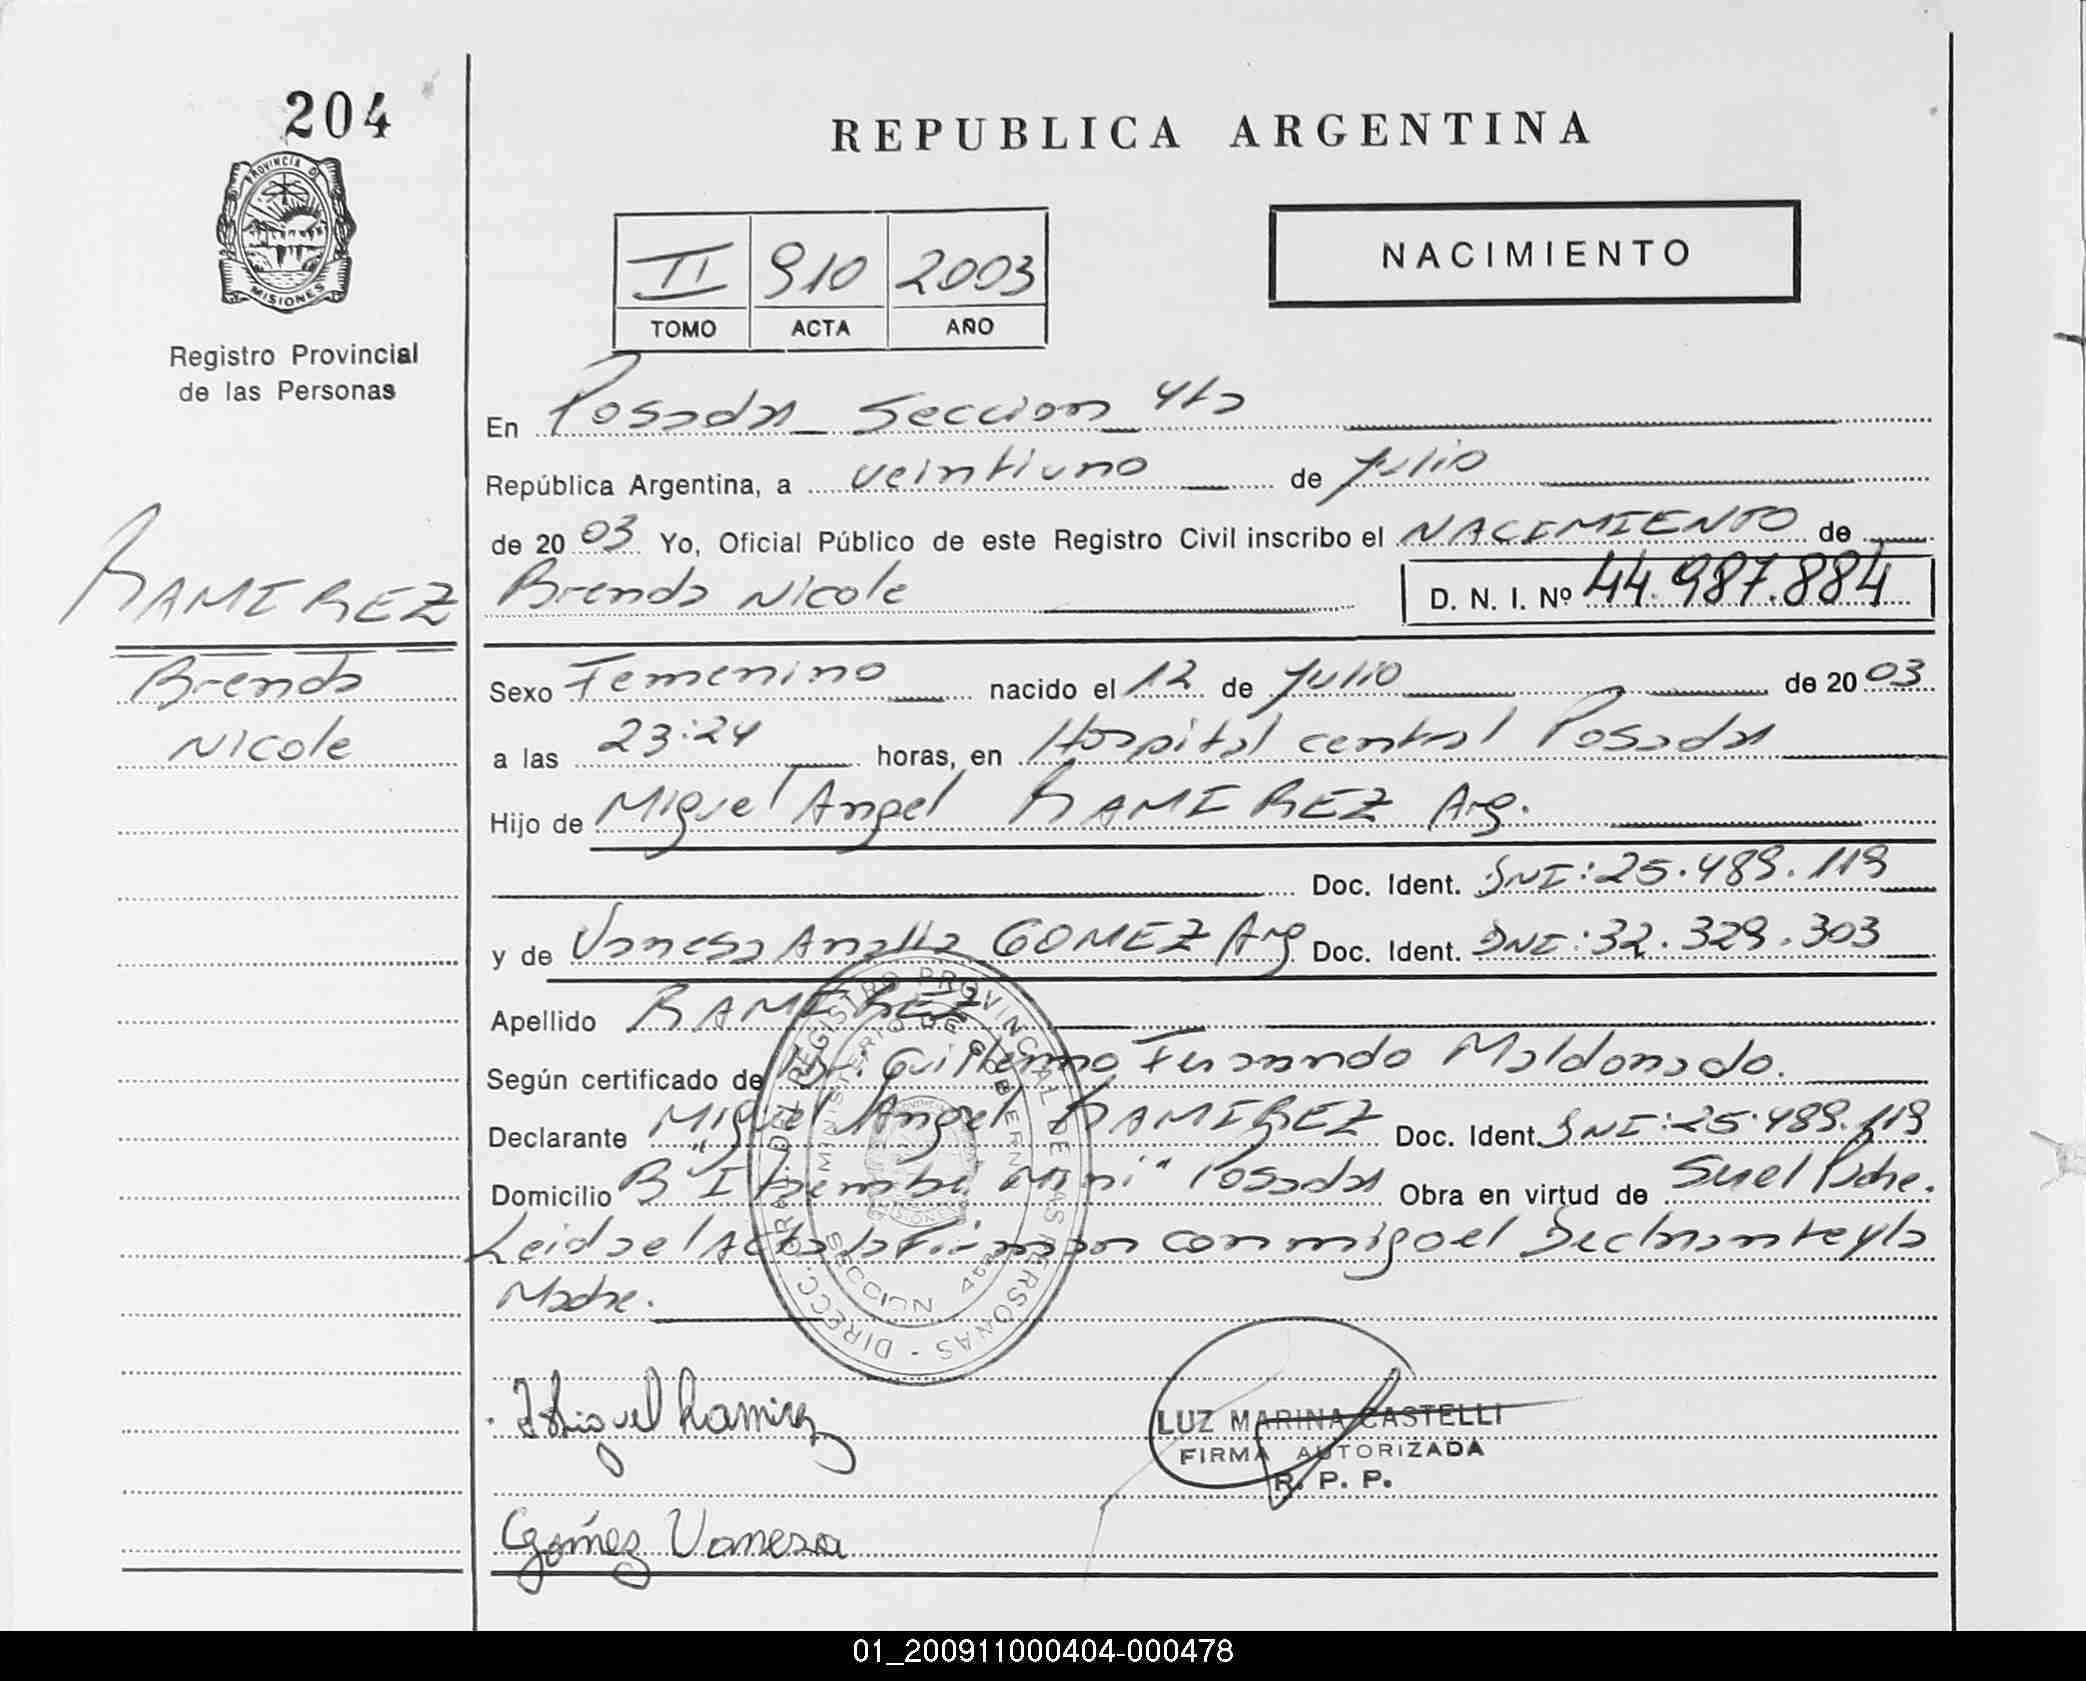 204
PROVINCIA D
MISIONES
Registro Provincial
de las Personas
REPUBLICA ARGENTINA
NACIMIENTO
II 910 2003
TOMO ACTA AÑO
En Posadas Seccion 4ta
República Argentina, a veintiuno de Julio
de 20 03 Yo, Oficial Público de este Registro Civil inscribo el NACIMIENTO de
Brenda Nicole D. N. I. Nº 44.987.884
RAMIREZ
Brenda
Nicole
Sexo Femenino nacido el 12 de Julio de 20 03
a las 23:24 horas, en Hospital central Posadas
Hijo de Miguel Angel RAMIREZ Arg.
Doc. Ident. DNI: 25.489.119
y de Vanesa Analia GOMEZ Arg Doc. Ident. DNI: 32.329.303
Apellido RAMIREZ
Según certificado de Dr. Guillermo Fernando Maldonado.
Declarante Miguel Angel RAMIREZ Doc. Ident. DNI: 25.489.119
Domicilio B° Posadas Obra en virtud de Ser el Padre.
Leida el Acta la Firman conmigo el Declarante y la
Madre.
DIRECC. GRAL. DEL REGISTRO PROVINCIAL DE LAS PERSONAS -
MINISTERIO DE GOBIERNO
SECCION 4ta
MISIONES
Miguel Ramirez
LUZ MARINA CASTELLI
FIRMA AUTORIZADA
R. P. P.
Gómez Vanesa
01_200911000404-000478